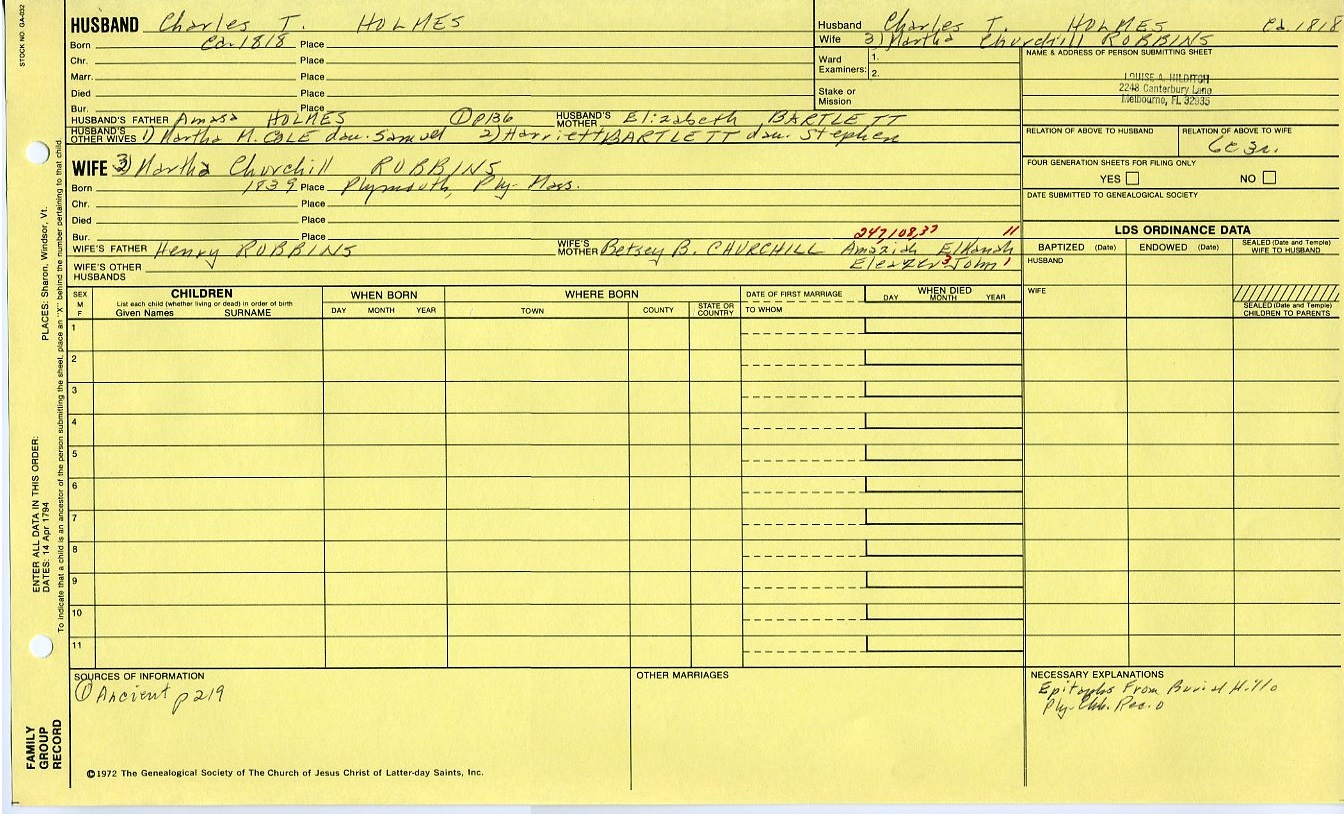 STOCK NO. GA-032
HUSBAND Charles T. HOLMES
Born ca. 1818 Place
Chr. Place
Marr. Place
Died Place
Bur. Place
HUSBAND'S FATHER Amasa HOLMES ① p136 HUSBAND'S MOTHER Elizabeth BARTLETT
HUSBAND'S OTHER WIVES 1) Martha M. COLE dau. Samuel 2) Harriett BARTLETT dau. Stephen
Husband Charles T. HOLMES ca. 1818
Wife 3) Martha Churchill ROBBINS
Ward Examiners: 1.
2.
Stake or Mission
NAME & ADDRESS OF PERSON SUBMITTING SHEET
LOUISE A. HILDITCH
2248 Canterbury Lane
Melbourne, FL 32935
RELATION OF ABOVE TO HUSBAND RELATION OF ABOVE TO WIFE
6c3r.
FOUR GENERATION SHEETS FOR FILING ONLY
YES NO
DATE SUBMITTED TO GENEALOGICAL SOCIETY
WIFE 3) Martha Churchill ROBBINS
Born 1839 Place Plymouth, Ply. Mass.
Chr. Place
Died Place
Bur. Place
247,108,37 11
WIFE'S FATHER Henry ROBBINS WIFE'S MOTHER Betsey B. CHURCHILL Amaziah Elkanah
Eleazer 3 John 1
WIFE'S OTHER HUSBANDS
LDS ORDINANCE DATA
BAPTIZED (Date) ENDOWED (Date) SEALED (Date and Temple) WIFE TO HUSBAND
HUSBAND
WIFE
SEALED (Date and Temple) CHILDREN TO PARENTS
SEX M F
CHILDREN
List each child (whether living or dead) in order of birth
Given Names SURNAME
WHEN BORN
DAY MONTH YEAR
WHERE BORN
TOWN COUNTY STATE OR COUNTRY
DATE OF FIRST MARRIAGE
TO WHOM
WHEN DIED
DAY MONTH YEAR
1
2
3
4
5
6
7
8
9
10
11
SOURCES OF INFORMATION
① Ancient p219
OTHER MARRIAGES
NECESSARY EXPLANATIONS
Epitaphs From Burial Hill
Ply. Chh. Rec.
©1972 The Genealogical Society of The Church of Jesus Christ of Latter-day Saints, Inc.
FAMILY GROUP RECORD
ENTER ALL DATA IN THIS ORDER:
DATES: 14 Apr 1794
PLACES: Sharon, Windsor, Vt.
To indicate that a child is an ancestor of the person submitting the sheet, place an "X" behind the number pertaining to that child.